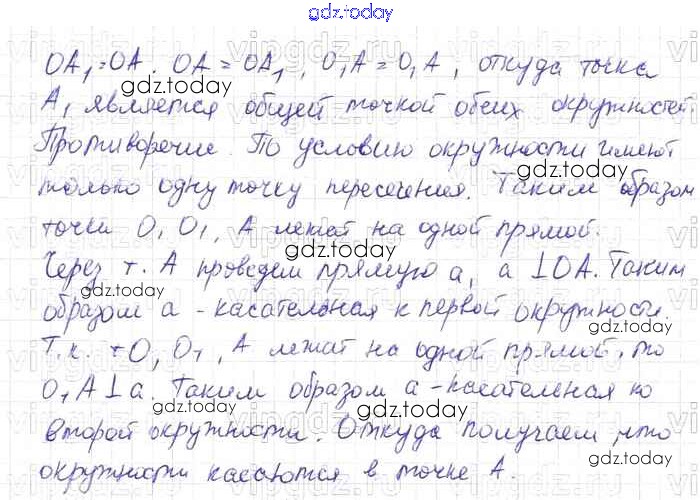 gdz.today
OA₁=OA. OA = OA₁, O₁A = O₁A, откуда точка
A₁ является общей точкой обеих окружностей.
Противоречие. По условию окружности имеют
только одну точку пересечения. Таким образом
точки O, O₁, A лежат на одной прямой.
Через т. A проведем прямую a, a ⊥ OA. Таким
образом a - касательная к первой окружности.
Т.к. т O, O₁, A лежат на одной прямой, то
O₁A ⊥ a. Таким образом a - касательная ко
второй окружности. Откуда получаем, что
окружности касаются в точке A.
gdz.today
gdz.today
gdz.today
gdz.today
gdz.today
gdz.today
gdz.today
gdz.today
gdz.today
gdz.today
gdz.today